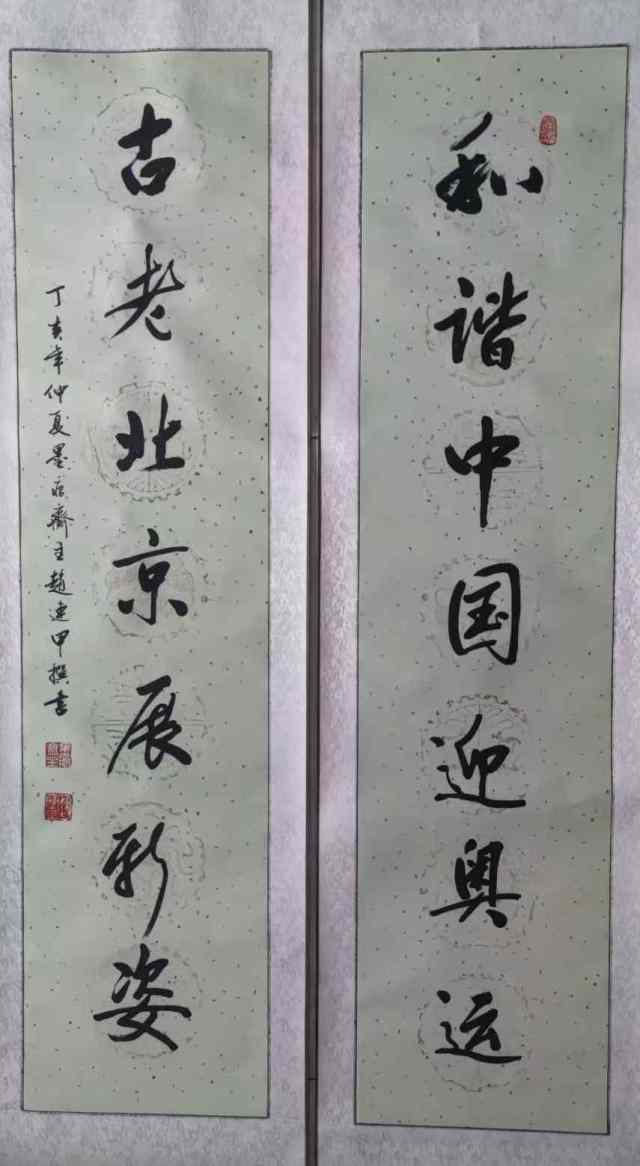 和谐中国迎奥运
古老北京展新姿
丁亥年仲夏墨石斋主赵连甲撰书